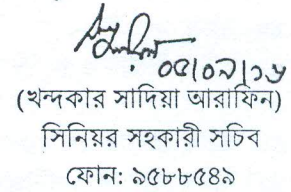 ০৫/০৯/১৬
(খন্দকার সাদিয়া আরাফিন)
সিনিয়র সহকারী সচিব
ফোন: ৯৫৮৮৫৪৯